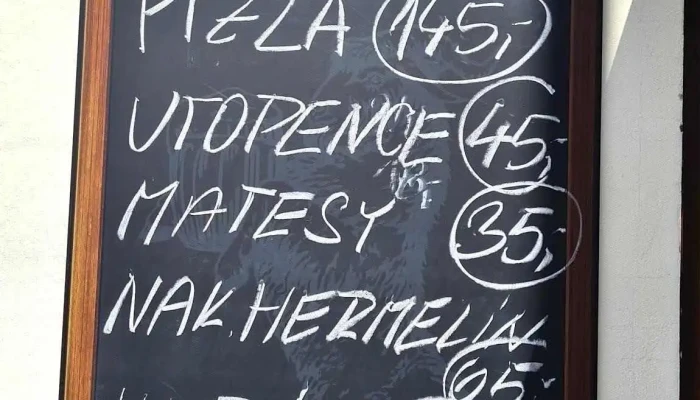 PIZZA 145,-
UTOPENCE 45,-
MATESY 35,-
NAK. HERMELÍN
65,-